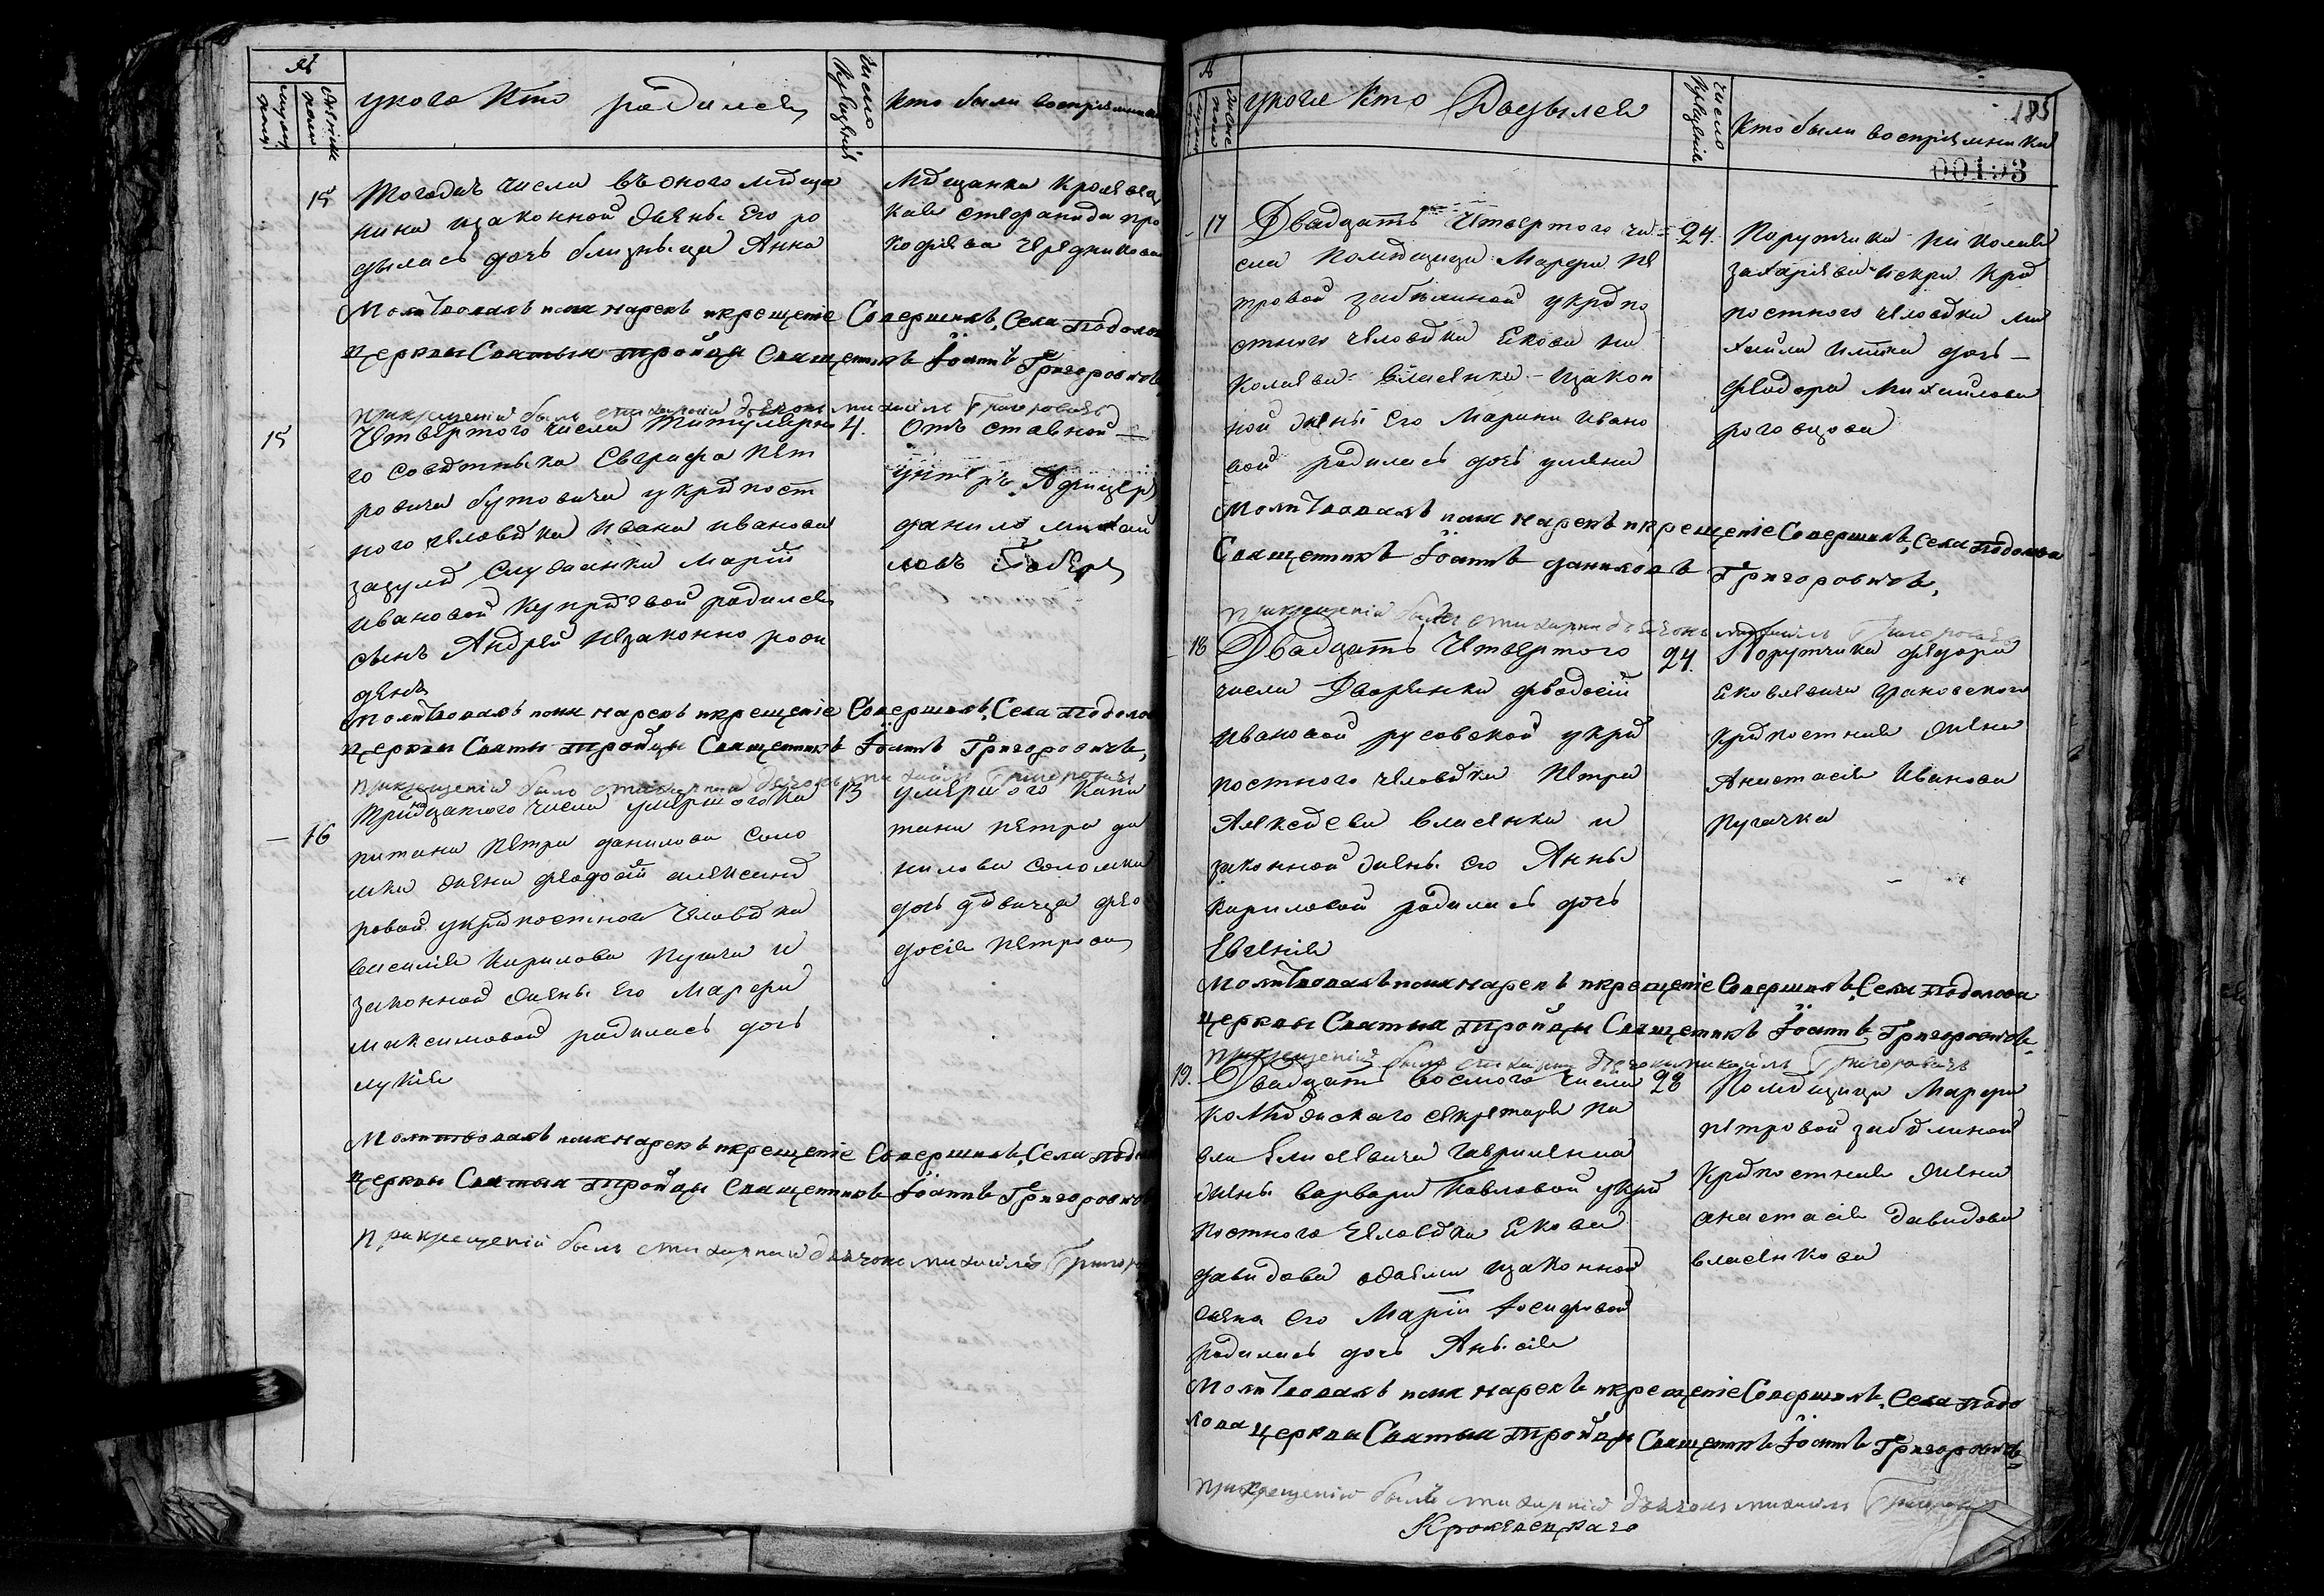 №
мужеска пола
женска пола
укого Кто родился
число крещенія
Кто были воспріемники
15
Тогожъ числа въ оного меща
нина изаконной жены Его ро
дылась дочь близныца Анна
Мещанка Кролевец
кая стефанида про
кофіева Чередникова
Молитвовалъ имя нарекъ икрещеніе Совершилъ, Села Подолова
церквы Святыя Тройцы Священникъ Іоаннъ Григоровичъ
прикрещеніи былъ стихарний дьячокъ михаилъ Григоровичъ
15
4.
Четвертого числа Титулярно
го советныка Евграфа Пет
ровича бутовича укрепост
ного человека Ивана Иванова
зазули Служанки Маріи
Ивановой Купреевой родился
сынъ Андрей незаконно рож
денъ
Отъ ставной
унтеръ Афицер
данило михай
ловъ
Молитвовалъ имя нарекъ икрещеніе Совершилъ, Села Подолова
церквы Святы Тройцы Священникъ Іоаннъ Григоровичъ,
прикрещеніи былъ стихарний дьячокъ михаилъ Григоровичъ
16
13
Тринадцатого числа умершого Ка
питана Петра данилова Соло
мки жены феодосіи александ
ровой укрепостного человека
василія Кирилова Пугача и
законной жены Его Марфы
максимовой родилась дочь
лукія
умершого Капи
тана петра да
нилова соломки
дочь девица фео
досія Петрова
Молитвовалъ имя нарекъ икрещеніе Совершилъ, Села Подол
церквы Святыя Тройцы Священникъ Іоаннъ Григорович
прикрещеніи былъ стихарний дьячокъ михаилъ Григоро
№
укого Кто Родылся
число крещенія
Кто были воспріемники
185
00193
17
24.
Двадцать Четвертого чи
сла Помещицы Марфы Пе
тровой забелиной укрепо
стного человека Якова Ни
колаева Власенка изакон
ной жены Его Марины Ивано
вой родилась дочь уляна
Порутчика Николая
Захаріева Искри Кре
постного человека ми
хаила дочь
феодора Михайлова
роговцова
Молитвовалъ имя нарекъ икрещеніе Совершилъ, Села Подолова
Священникъ Іоаннъ даниловъ Григоровичъ,
прикрещеніи былъ стихарни дьячокъ михаилъ Григоровичъ
18
24.
Двадцать Четвертого
числа Дворянки феодосіи
Ивановой русовской укре
постного человека Петра
Алексеева власенка и
законной жены его Анны
Кириловой родилась дочь
Евгенія
Порутчика федора
Яковлевича
крепостная жена
Анастасія Иванова
Пугачка
Молитвовалъ имя нарекъ икрещеніе Совершилъ, Села Подолова
церквы Святыя Тройцы Священникъ Іоаннъ Григоровичъ
прикрещеніи былъ стихарни дьячокъ михаилъ Григоровичъ
19.
28
Двадцать восмого числа
Коллежского секретаря Па
вла Елисеевича Гавриленка
жены варвары Павловой укре
постного человека Якова
давидова изаконной
жены его Маріи Іосифовой
родилась дочь Анысія
Помещицы Марфы
петровой забелиной
Крепостная жена
анастасія давидова
власенкова
Молитвовалъ имя нарекъ икрещеніе Совершилъ, Села Подо
лова церквы Святыя Тройцы Священникъ Іоаннъ Григоровичъ
прикрещеніи былъ стихарний дьячокъ михаилъ Григоровичъ
Кролевецкаго